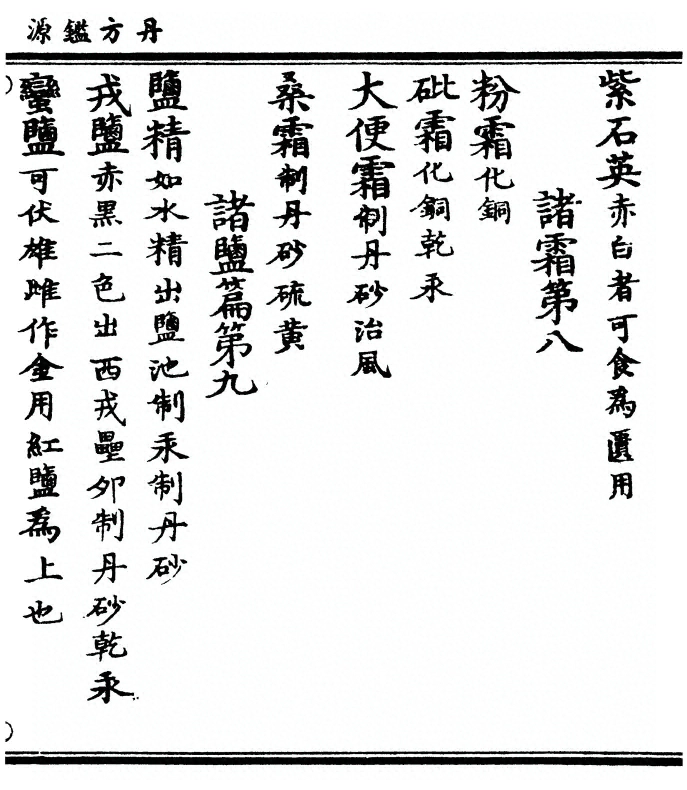 丹方鑑源
紫石英赤白者可食為匱用
諸霜第八
粉霜化銅
砒霜化銅乾汞
大便霜制丹砂治風
桑霜制丹砂硫黄
諸鹽篇第九
鹽精如水精出鹽池制汞制丹砂
戎鹽赤黑二色出西戎壘夘制丹砂乾汞
蠻鹽可伏雄雌作金用紅鹽為上也